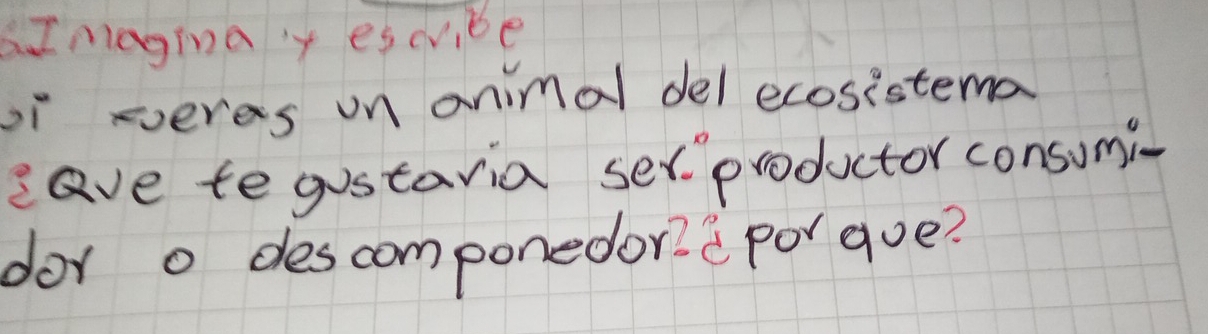 Imagina y escribe
si fueras un animal del ecosistema
¿Que te gustaria ser: productor consumi-
dor o descomponedor? ¿por que?